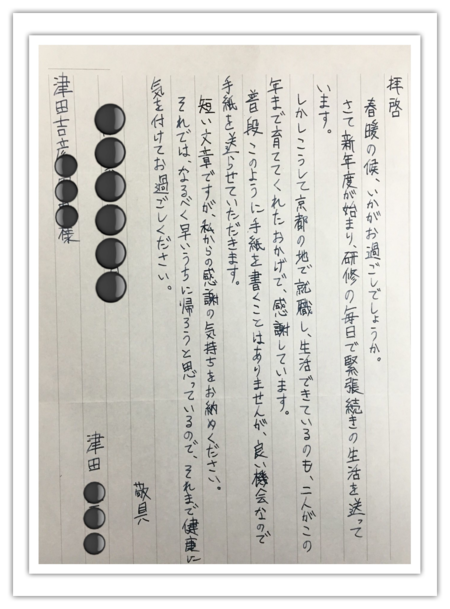 拝啓
春暖の候、いかがお過ごしでしょうか。
さて新年度が始まり、研修の毎日で緊張続きの生活を送って
います。
しかしこうして京都の地で就職し、生活できているのも、二人がこの
年まで育ててくれたおかげで、感謝しています。
普段このように手紙を書くことはありませんが、良い機会なので
手紙を送らせていただきます。
短い文章ですが、私からの感謝の気持ちをお納めください。
それでは、なるべく早いうちに帰ろうと思っているので、それまで健康に
気を付けてお過ごしください。
敬具
津田
津田吉彦 様